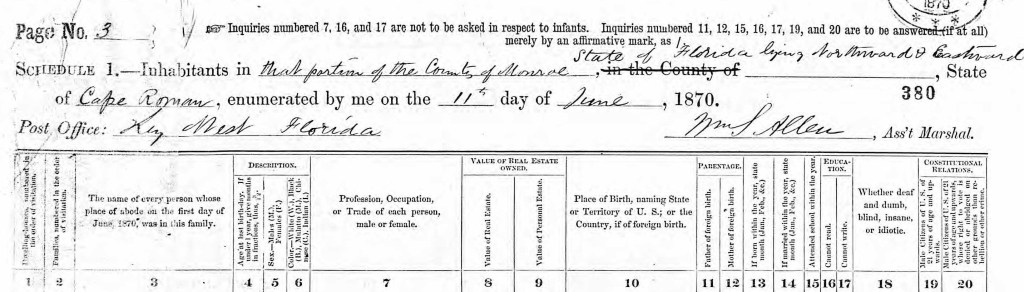 1870
Page No. 3 ☞ Inquiries numbered 7, 16, and 17 are not to be asked in respect to infants. Inquiries numbered 11, 12, 15, 16, 17, 19, and 20 are to be answered (if at all)
merely by an affirmative mark, as /
State of Florida lying Northward & Eastward
SCHEDULE 1.—Inhabitants in that portion of the County of Monroe, in the County of , State
of Cape Roman, enumerated by me on the 11th day of June, 1870. 380
Post Office: Key West Florida Wm S Allen, Ass't Marshal.
Dwelling-houses, numbered in the order of visitation.
Families, numbered in the order of visitation.
The name of every person whose place of abode on the first day of June, 1870, was in this family.
DESCRIPTION.
Age at last birth-day. If under 1 year, give months in fractions, thus, 3/12.
Sex.—Males (M.), Females (F.)
Color.—White (W.), Black (B.), Mulatto (M.), Chinese (C.), Indian (I.)
Profession, Occupation, or Trade of each person, male or female.
VALUE OF REAL ESTATE OWNED.
Value of Real Estate.
Value of Personal Estate.
Place of Birth, naming State or Territory of U. S.; or the Country, if of foreign birth.
PARENTAGE.
Father of foreign birth.
Mother of foreign birth.
If born within the year, state month (Jan., Feb., &c.)
If married within the year, state month (Jan., Feb., &c.)
Attended school within the year.
EDUCATION.
Cannot read.
Cannot write.
Whether deaf and dumb, blind, insane, or idiotic.
CONSTITUTIONAL RELATIONS.
Male Citizens of U. S. of 21 years of age and upwards.
Male Citizens of U. S. of 21 years of age and upwards, whose right to vote is denied or abridged on other grounds than rebellion or other crime.
1 2 3 4 5 6 7 8 9 10 11 12 13 14 15 16 17 18 19 20